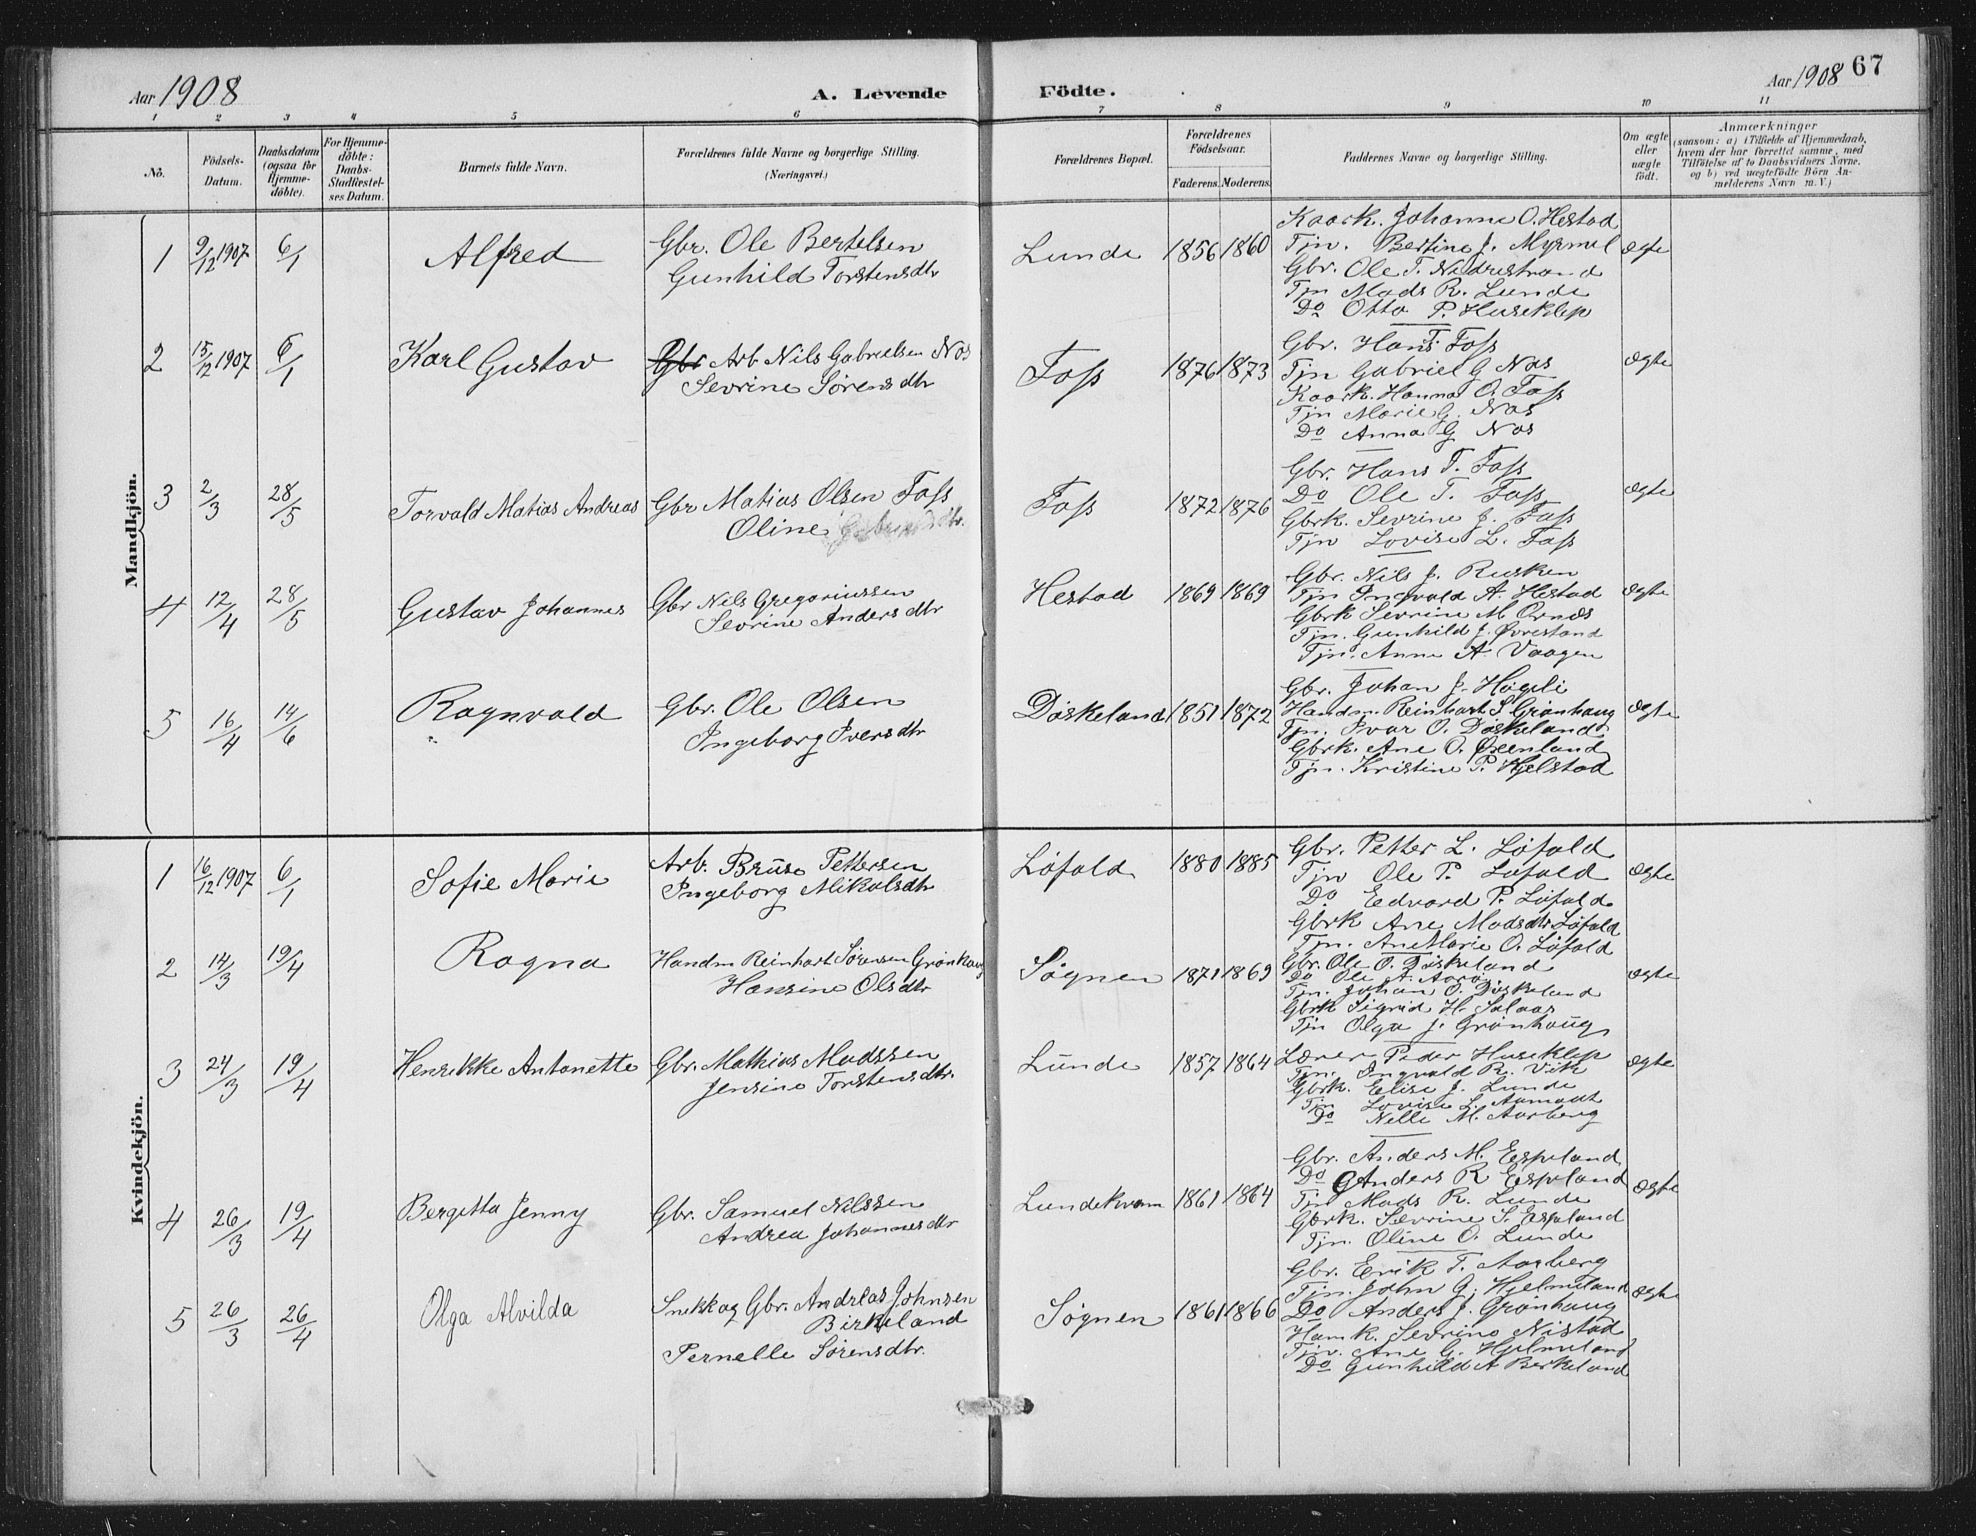 Aar 1908
A. Levende Födte.
Aar 1908 67
1 2 3 4 5 6 7 8 9 10 11
No.
Födsels-Datum.
Daabsdatum (ogsaa for Hjemmedöbte).
For Hjemmedöbte: Daabs-Stadfæstelses Datum.
Barnets fulde Navn.
Forældrenes fulde Navne og borgerlige Stilling. (Næringsvei.)
Forældrenes Bopæl.
Forældrenes Födselsaar.
Faderens. Moderens.
Faddernes Navne og borgerlige Stilling.
Om ægte eller uægte födt.
Anmærkninger
(saasom: a) i Tilfælde af Hjemmedaab, hvem der har forrettet samme, med Tilföielse af to Daabsvidners Navne, og b) ved uægtefödte Börn Anmelderens Navn m. V.)
Mandkjön.
1 9/12 1907 6/1 Alfred
Gbr. Ole Bertelsen
Gunhild Torstensdtr
Lunde 1856 1860
Kaark. Johanne O. Hestad
Tjn. Bertine J. Myrmel
Gbr. Ole T. Nedrestrand
Tjn Mads R. Lunde
Do Otto P. Huseklep
ægte
2 15/12 1907 6/1 Karl Gustav
Gbr Arb Nils Gabrielsen Nos
Sevrine Sörensdtr
Foss 1876 1873
Gbr. Hans T. Foss
Tjn Gabriel G Nos
Kaark. Hanna O. Foss
Tjn Marie G. Nos
Do Anna G Nos
ægte
3 2/3 28/5 Torvald Matias Andreas
Gbr Matias Olsen Foss
Oline Gabrielsdtr.
Foss 1872 1876
Gbr. Hans T. Foss
Do Ole T. Foss
Gbrk. Sevrine J. Foss
Tjn Lovise L. Foss
ægte
4 12/4 28/5 Gustav Johannes
Gbr Nils Gregoriussen
Sevrine Andersdtr
Hestad 1869 1869
Gbr. Nils J. Rusken
Tjn Ingvald A. Hestad
Gbrk Sevrine M Ornes
Tjn. Gunhild J. Øvrestand
Tjn. Anne A. Vaagen
ægte
5 16/4 14/6 Ragnvald
Gbr. Ole Olsen
Ingeborg Iversdtr
Döskeland 1851 1872
Gbr. Johan J. Högeli
Handm. Reinhart S. Grönhaug
Tjn. Ivar O. Döskeland
Gbrk. Ane O. Øxenland
Tjn. Kristine P. Hjelstad
ægte
Kvindekjön.
1 16/12 1907 6/1 Sofie Marie
Arb. Bruse Pettersen
Ingeborg Mikalsdtr
Löfald 1880 1885
Gbr. Petter L. Löfald
Tjn Ole P. Löfald
Do Edvard P. Löfald
Gbrk Ane Madsdtr Löfald
Tjn. Ane Marie O. Löfald
ægte
2 14/3 19/4 Ragna
Handm Reinhart Sörensen Grönhaug
Hansine Olsdtr
Søgnen 1871 1869
Gbr. Ole O. Döskeland
Do Ole A.
Tjn. Johan O. Döskeland
Gbrk Sigrid H. Salaas
Tjn Olga J. Grønhaug
ægte
3 24/3 19/4 Henrikke Antonette
Gbr. Mathias Madssen
Jensine Torstensdtr.
Lunde 1857 1864
Lærer Peder Huseklep
Tjn. Ingvald R. Vik
Gbrk. Elise J. Lunde
Tjn Lovise L. Aamodt
Do Nelle M. Aarberg
ægte
4 26/3 19/4 Bergitta Jenny
Gbr. Samuel Nilssen
Andrea Johannesdtr
Lundekvam 1861 1864
Gbr. Anders M. Espeland
Do Anders R Espeland
Tjn Mads R. Lunde
Gbrk. Sevrine S. Espeland
Tjn. Oline O. Lunde
ægte
5 26/3 26/4 Olga Alvilda
Snekk og Gbr. Andreas Johnsen
Birkeland
Pernelle Sörensdtr.
Søgnen 1861 1866
Gbr. Erik T. Aarberg
Tjn. John G. Hjelmeland
Do Anders J. Grønhaug
Hamk. Sevrine Nistad
Tjn. Ane G. Hjelmeland
Do Gunhild A Birkeland
ægte